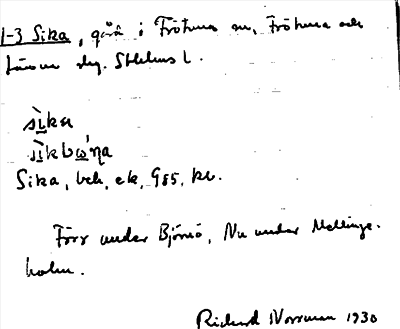 1-3 Sika, gård i Frötuna sn, Frötuna och
Länna slg. Sthlms l.
sìka
sìkbωˈŋa
Sika, beb, ek, G85, kv.
Förr under Björnö, Nu under Mellinge-
holm.
Richard Norrman 1930